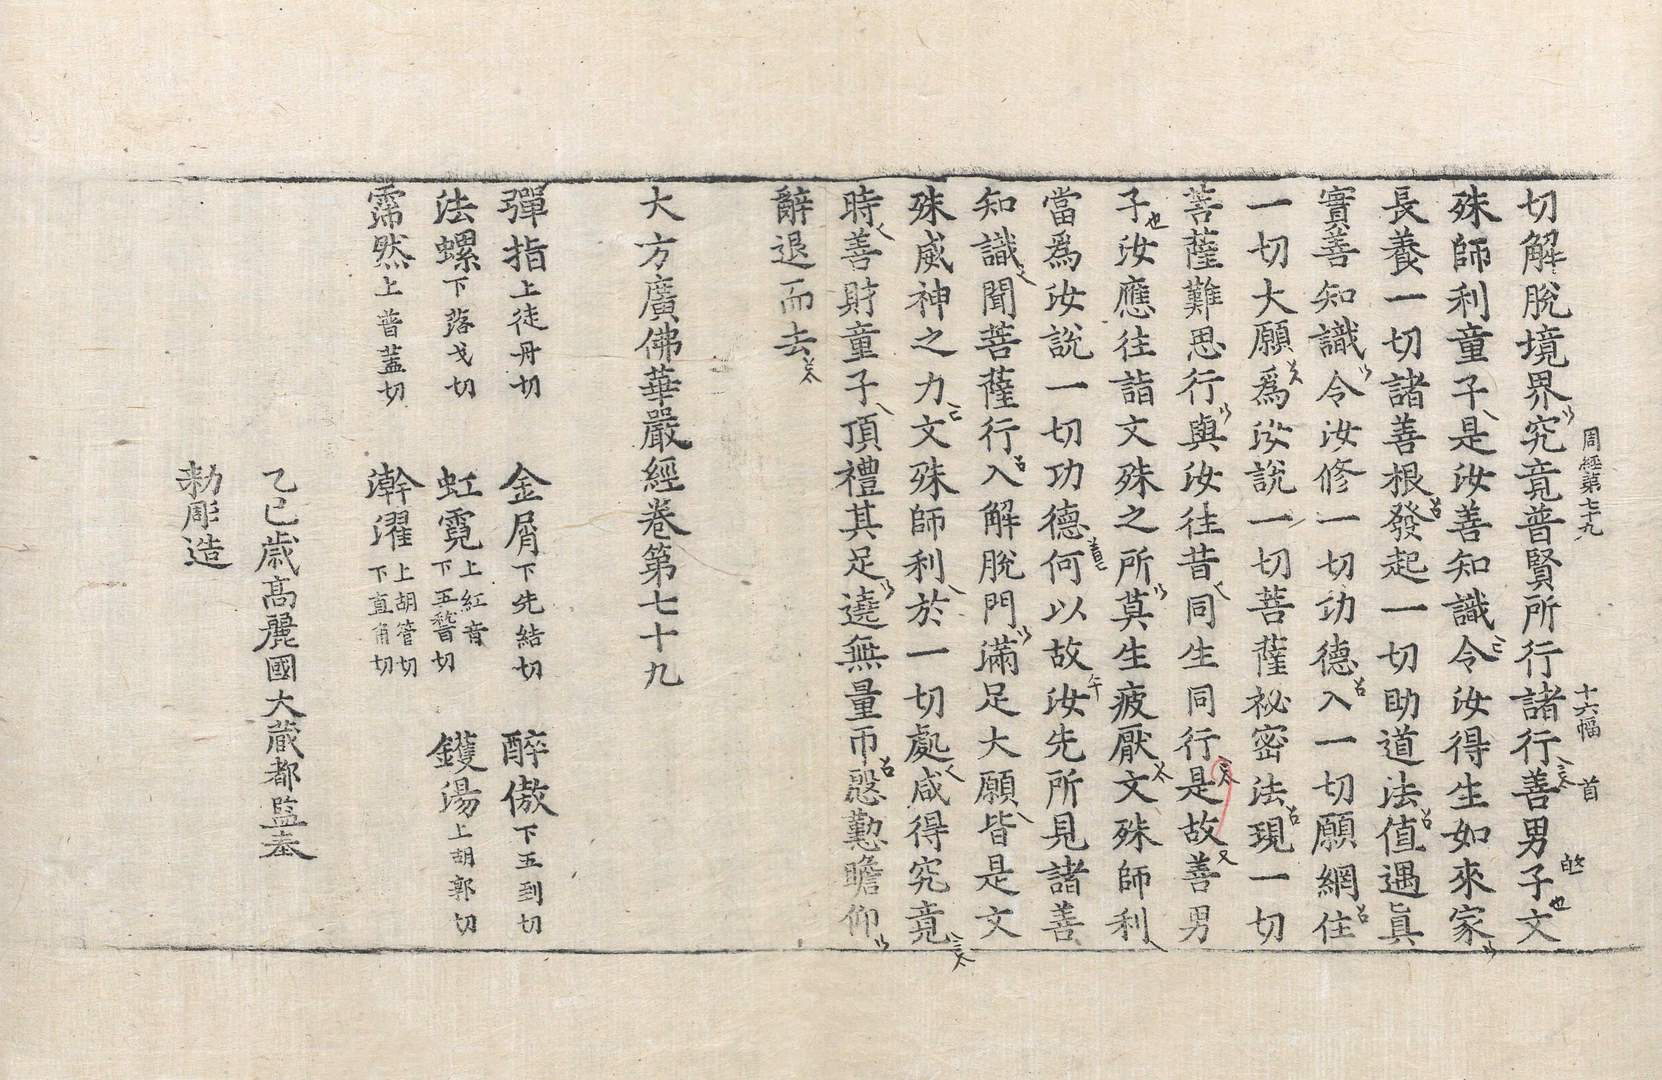 周經第七十九
十六幅
首
切解脫境界究竟普賢所行諸行善男子文
殊師利童子是汝善知識令汝得生如來家
長養一切諸善根發起一切助道法值遇眞
實善知識令汝修一切功德入一切願網住
一切大願爲汝說一切菩薩祕密法現一切
菩薩難思行與汝往昔同生同行是故善男
子汝應往詣文殊之所莫生疲厭文殊師利
當爲汝說一切功德何以故汝先所見諸善
知識聞菩薩行入解脫門滿足大願皆是文
殊威神之力文殊師利於一切處咸得究竟
時善財童子頂禮其足遶無量帀慇懃瞻仰
辭退而去
大方廣佛華嚴經卷第七十九
彈指上徒丹切 金屑下先結切 醉傲下五到切
法螺下落戈切 虹霓上紅音下五嵇切 鑊湯上胡郭切
霈然上普蓋切 澣濯上胡管切下直角切
乙巳歲高麗國大藏都監奉
勅彫造